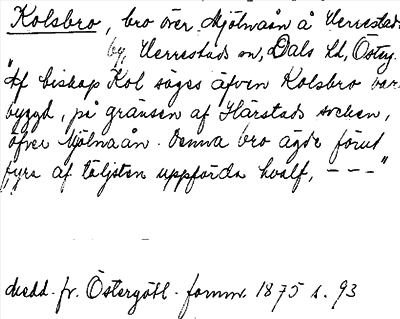 Kolsbro, bro över Mjölnaån å Herrestads
by, Herrestads sn, Dals hd, Östg.
"Af biskop Kol säges äfven Kolsbro vara
byggd, på gränsen af Härstads socken,
öfver Mjölnaån. Denna bro ägde förut
fyra af täljsten uppförda hvalf, ---"
Medd. fr. Östergötl. fornm. 1875 s. 93